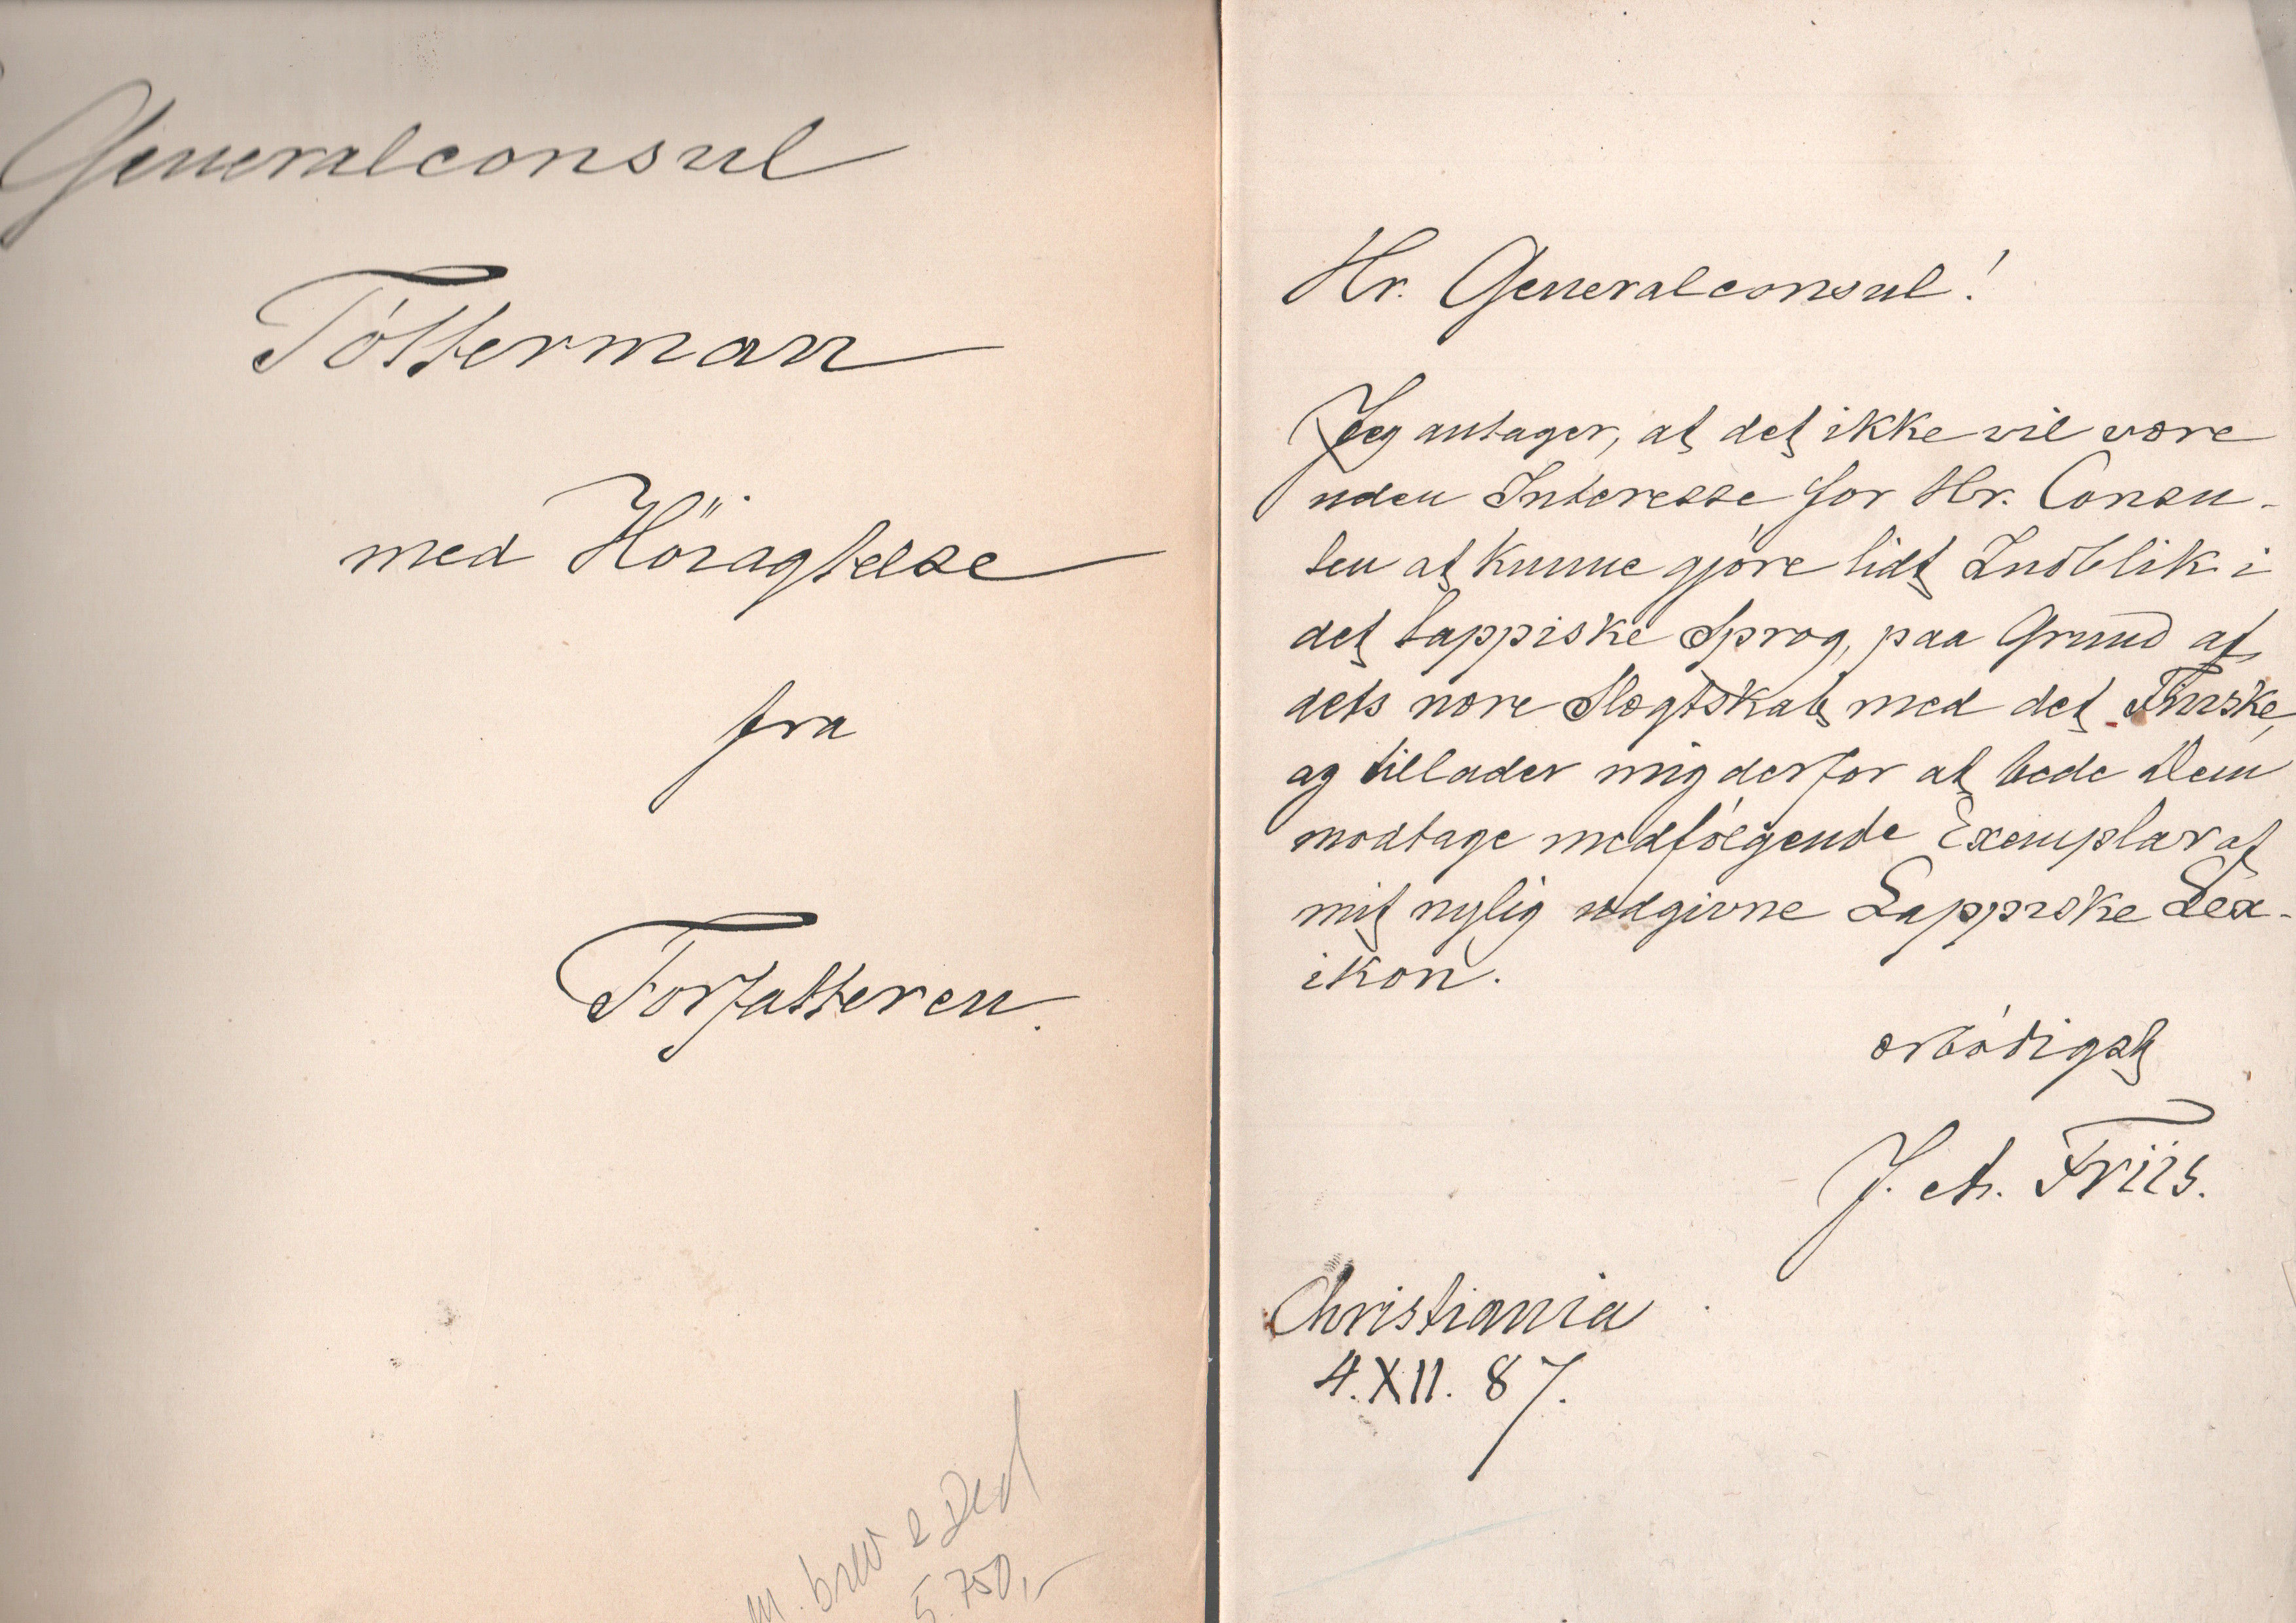 Generalconsul
Tötterman
med Höiagtelse
fra
Forfatteren.
m. brev & Ded
5.750,-
Hr. Generalconsul!
Jeg antager, at det ikke vil være
uden Interesse for Hr. Consu-
len at kunne gjöre lidt Indblik i
det lappiske Sprog, paa Grund af
dets nære Slægtskab med det Finske,
og tillader mig derfor at bede Dem
modtage medfölgende Exemplar af
mit nylig udgivne Lappiske Lex-
ikon.
ærbödigst
J. A. Friis.
Christiania
4.XII. 87.